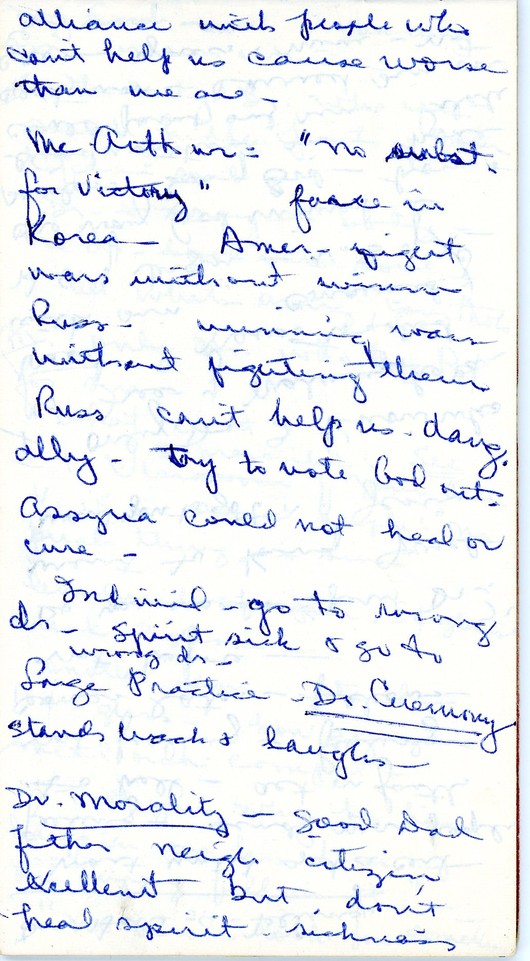 alliance with people who
can't help us cause worse
than we are -
Mc Arthur = "no subst.
for victory" farce in
Korea - Amer - fight
wars without winn
Russ - winning wars
without fighting them
Russ can't help us - dang.
ally - try to vote God out.
Assyria could not heal or
cure -
Individ - go to wrong
dr - Spirit sick & go to
wrong dr -
Large Practice - Dr. Ceremony
stands back & laughs -
Dr. Morality - Good Dad
father neigh citizen
excellent but don't
heal spirit - sickness